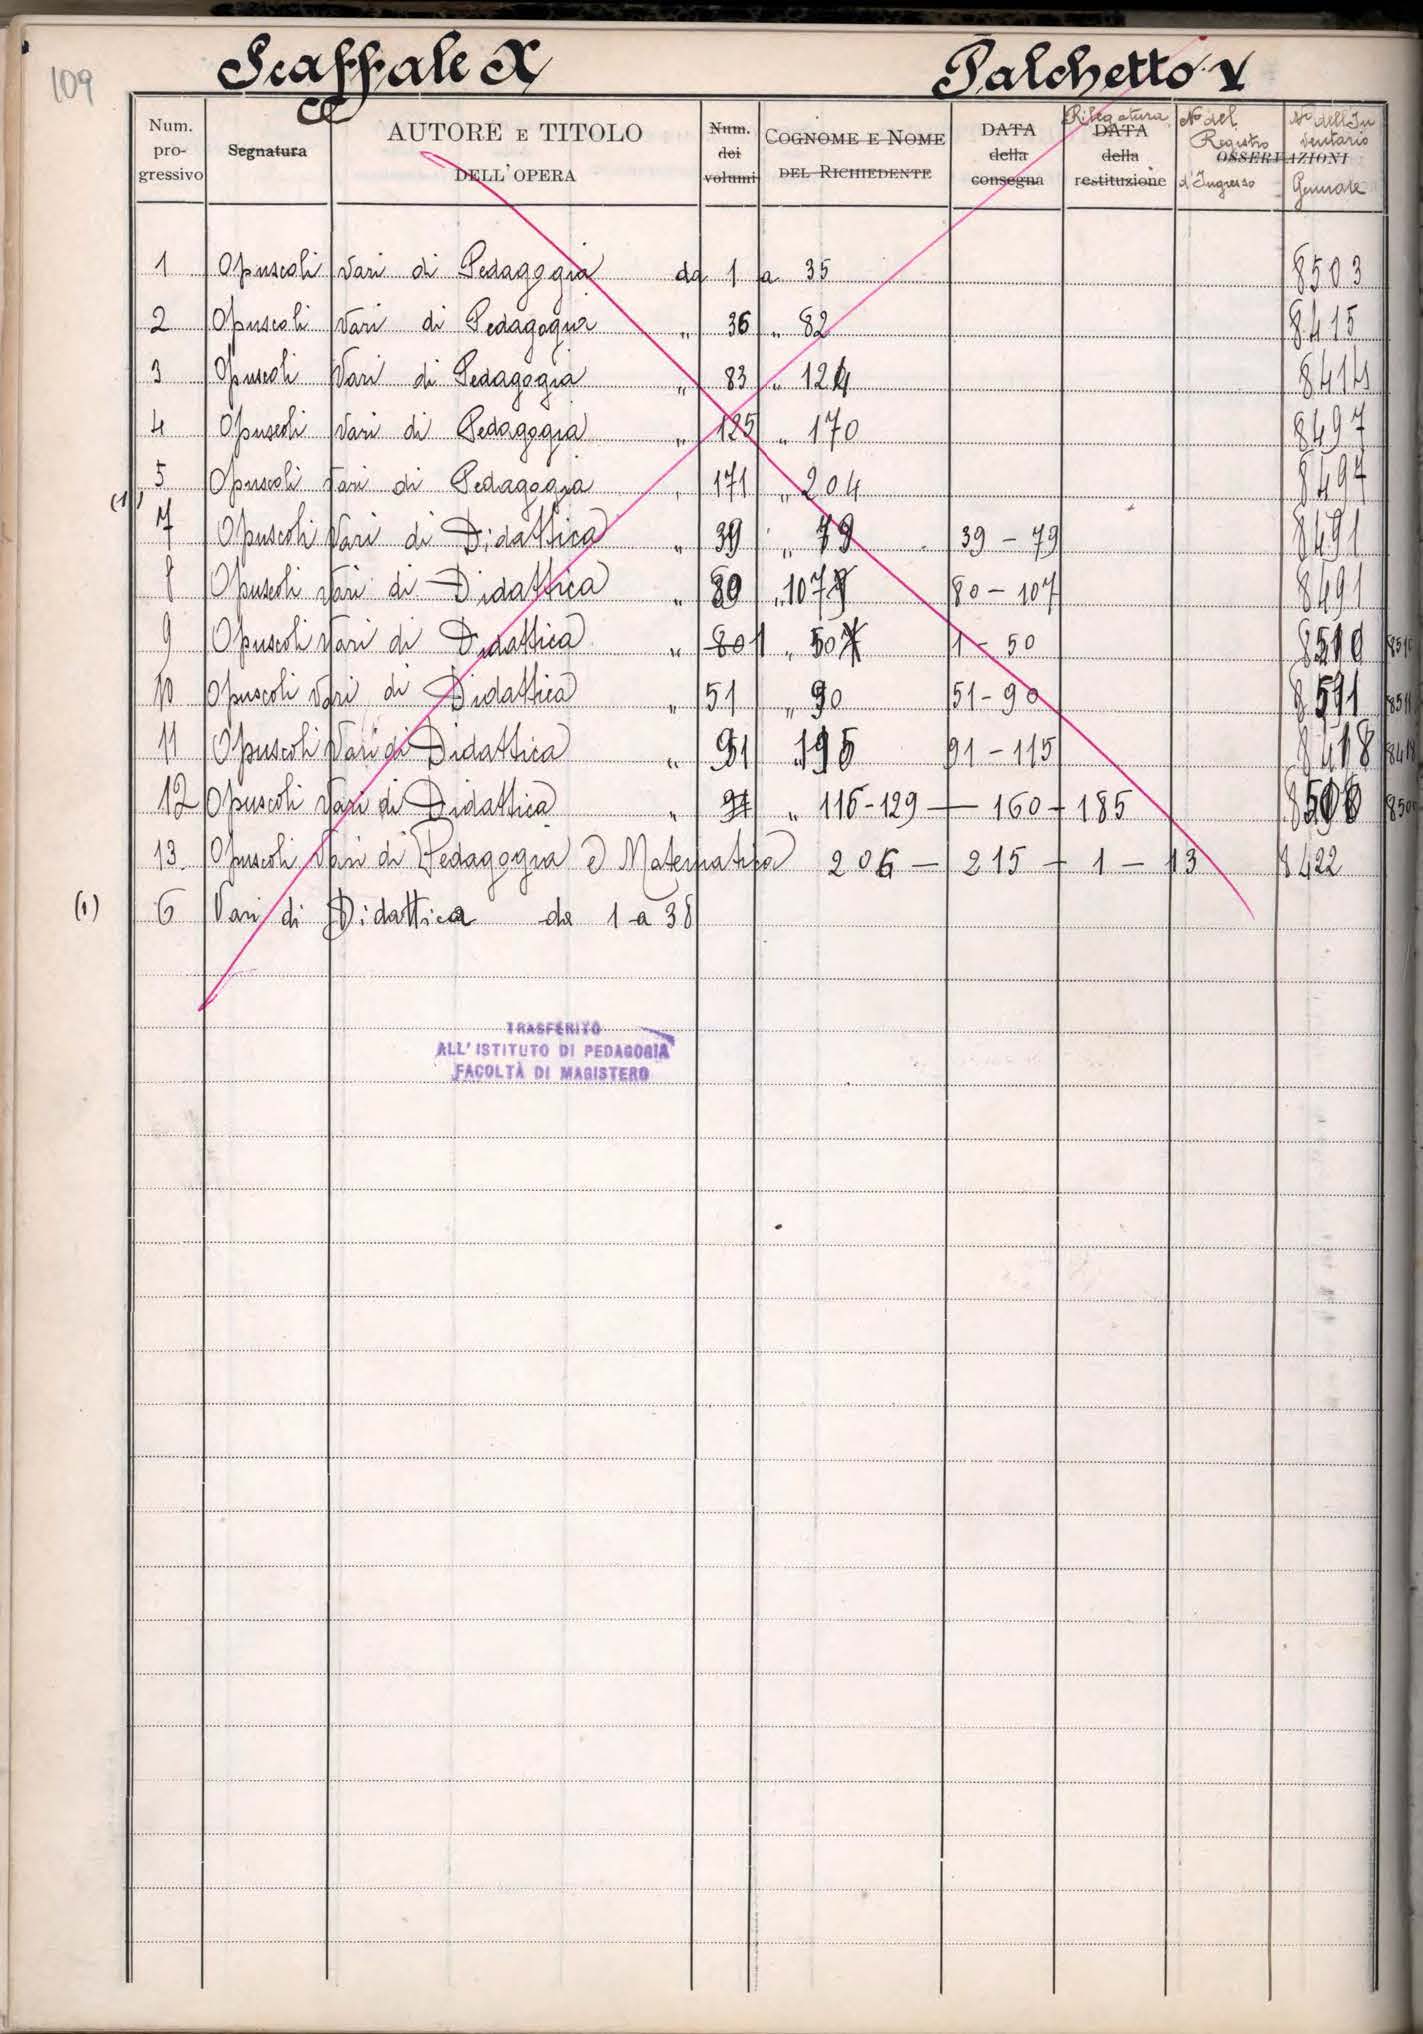 109
Scaffale X Palchetto V
Num. progressivo Segnatura AUTORE E TITOLO DELL'OPERA Num. dei volumi COGNOME E NOME DEL RICHIEDENTE DATA della consegna Rilegatura DATA della restituzione No del Registro d'Ingresso OSSERVAZIONI No dell'Inventario Generale
1 Opuscoli vari di Pedagogia da 1 a 35 8503
2 Opuscoli vari di Pedagogia " 36 " 82 8415
3 Opuscoli vari di Pedagogia " 83 " 124 8414
4 Opuscoli vari di Pedagogia " 125 " 170 8497
5 Opuscoli vari di Pedagogia " 171 " 204 8497
(1)
7 Opuscoli vari di Didattica " 39 " 79 39 - 79 8491
8 Opuscoli vari di Didattica " 80 " 107 80 - 107 8491
9 Opuscoli vari di Didattica " 1 " 50 1 - 50 8510
10 Opuscoli vari di Didattica " 51 " 90 51 - 90 8511
11 Opuscoli vari di Didattica " 91 " 115 91 - 115 8418
12 Opuscoli vari di Didattica " 91 " 116-129 — 160 - 185
13 Opuscoli vari di Pedagogia e Matematica 206 — 215 - 1 - 13 8422
(1) 6 Vari di Didattica da 1 a 38
TRASFERITO
ALL'ISTITUTO DI PEDAGOGIA
FACOLTÀ DI MAGISTERO